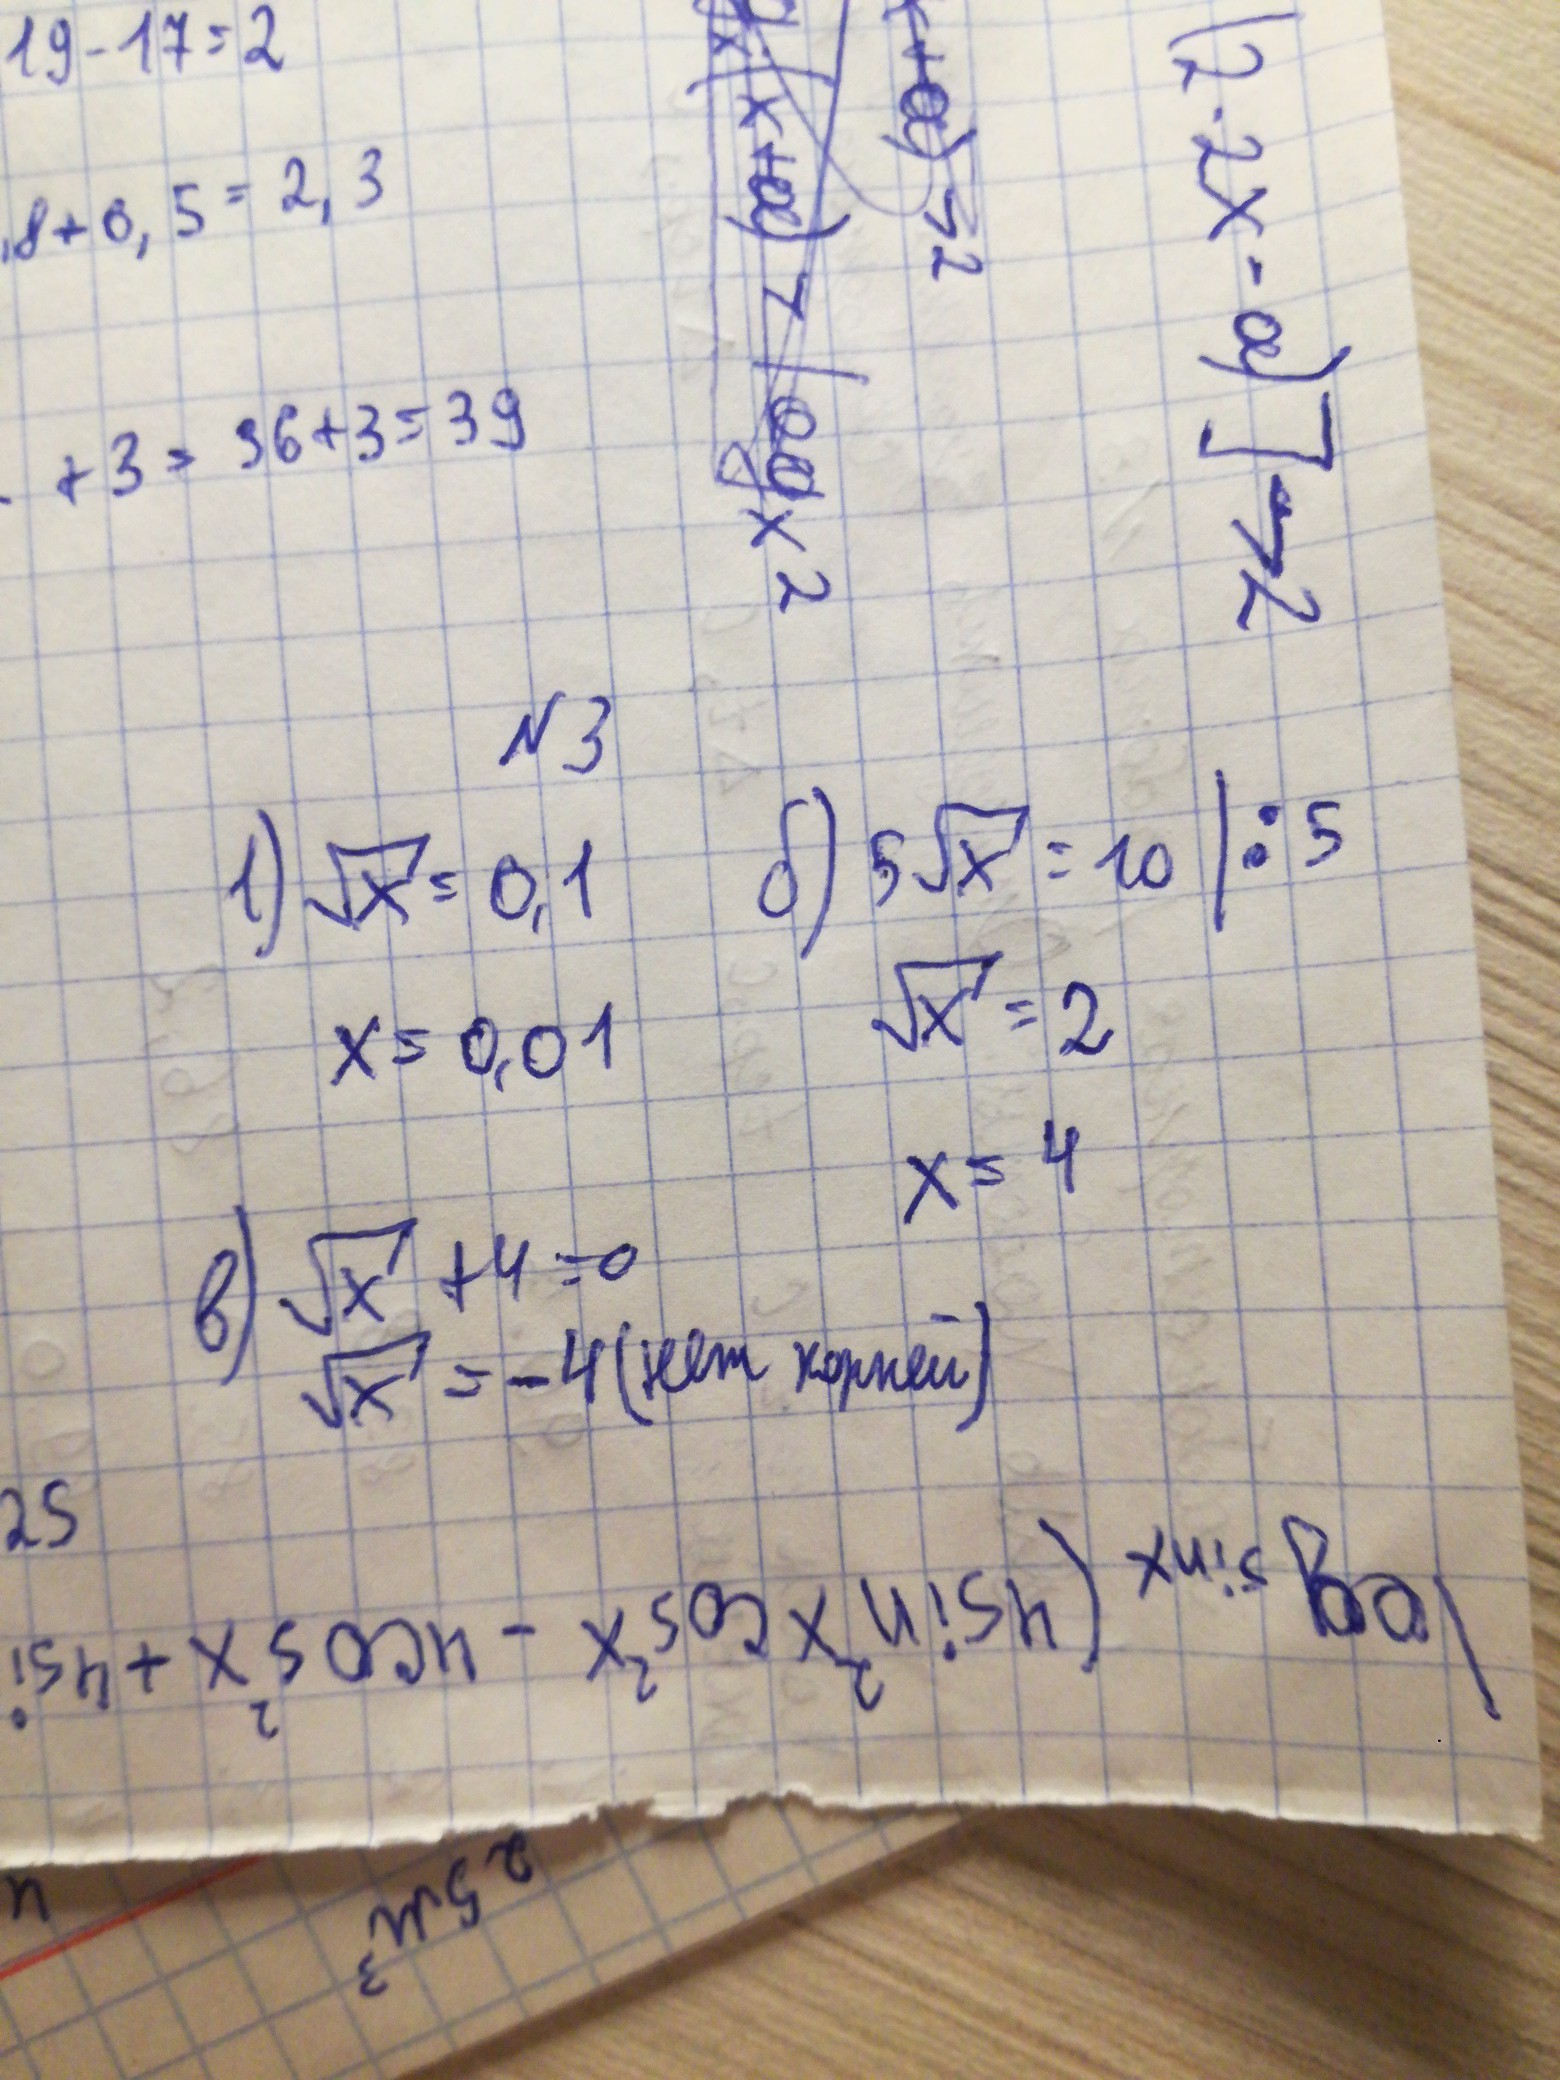 19-17=2
,8+0,5=2,3
+3= 36+3=39
x+a)
x2
x+a)
2·2x-a)]
N3
1) √x=0,1
x=0,01
б) 5√x=10 |:5
√x=2
x=4
в) √x+4=0
√x=-4(нет корней)
25
log sinx (4sin²x cos²x - 4cos²x+4si
25м³